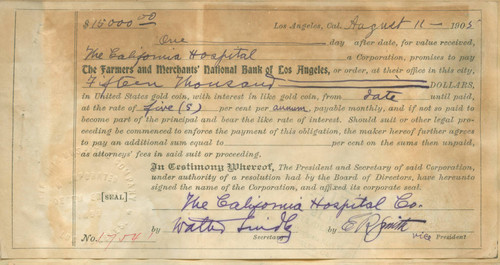 $15000.00 Los Angeles, Cal. August 11 – 1905
One day after date, for value received,
The California Hospital a Corporation, promises to pay
The Farmers and Merchants' National Bank of Los Angeles, or order, at their office in this city,
Fifteen Thousand DOLLARS,
in United States gold coin, with interest in like gold coin, from date until paid,
at the rate of five (5) per cent per annum, payable monthly; and if not so paid to
become part of the principal and bear the like rate of interest. Should suit or other legal pro-
ceeding be commenced to enforce the payment of this obligation, the maker hereof further agrees
to pay an additional sum equal to per cent on the sums then unpaid,
as attorneys' fees in said suit or proceeding.
In Testimony Whereof, The President and Secretary of said Corporation,
under authority of a resolution had by the Board of Directors, have hereunto
signed the name of the Corporation, and affixed its corporate seal.
[SEAL]
The California Hospital Co.
No. by Walter Lindley by E R Smith
Secretary Vice President